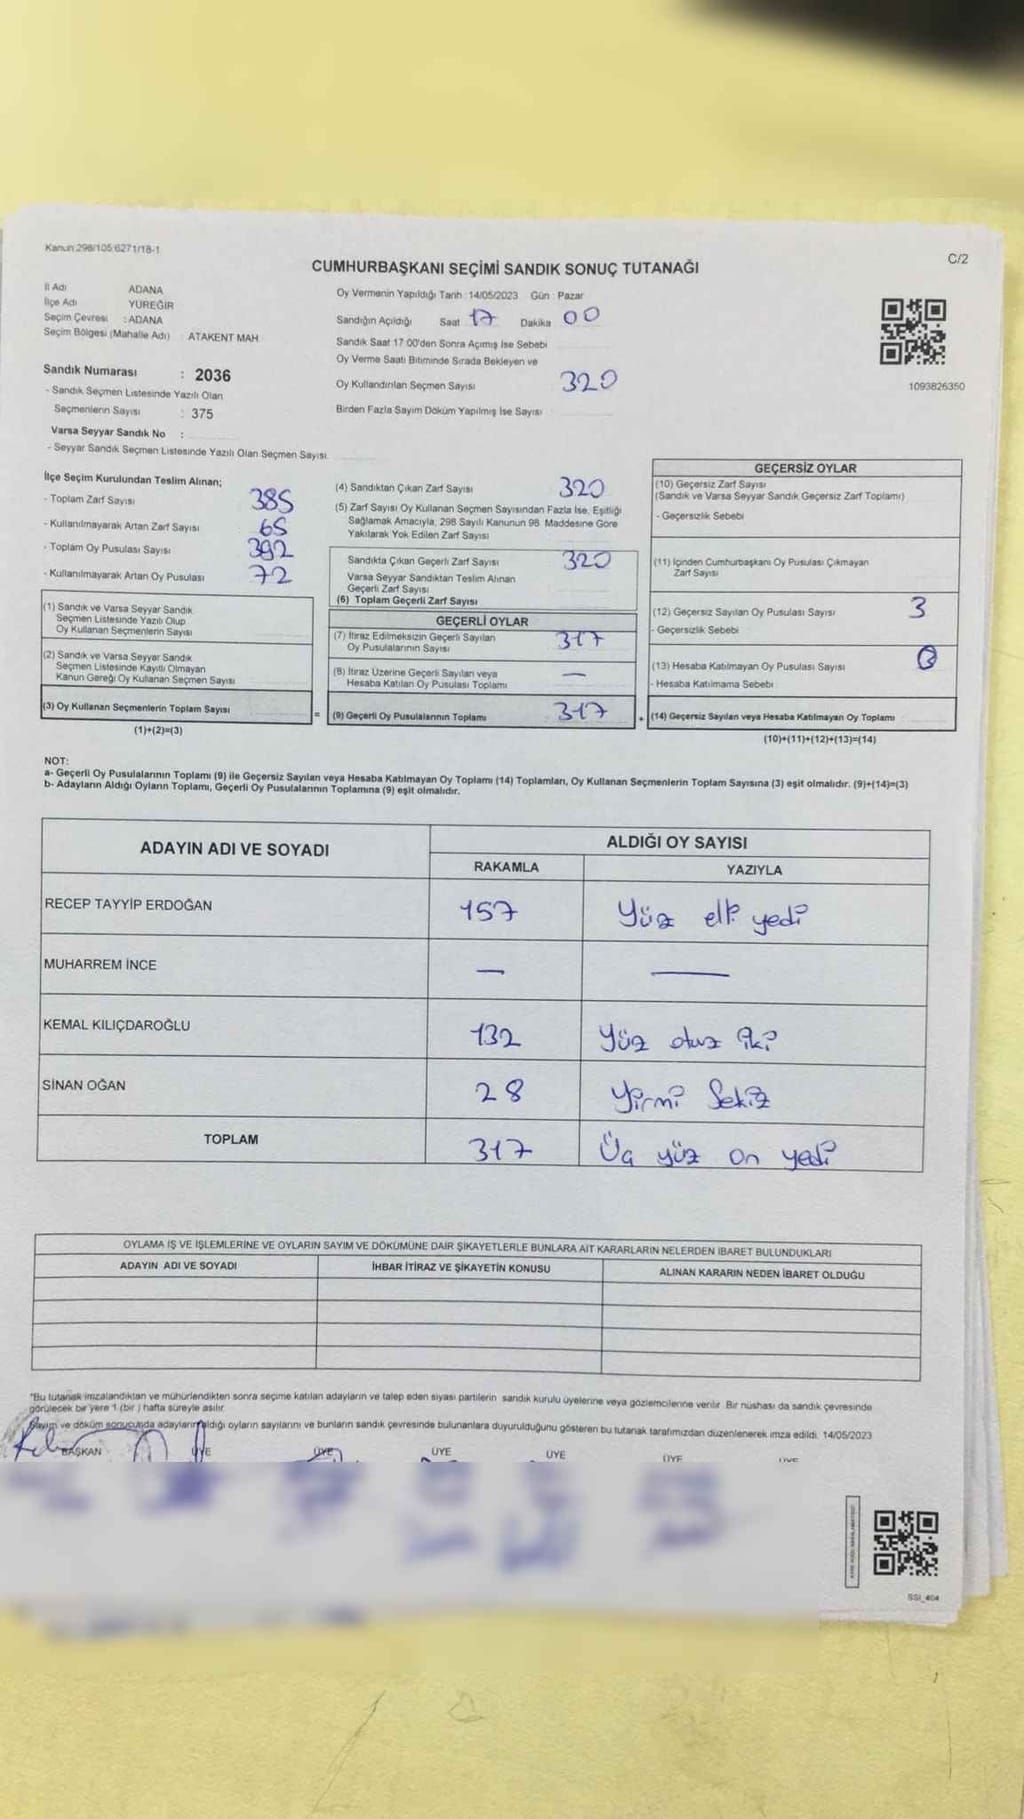 Kanun 298/105 6271/18-1
C/2
CUMHURBAŞKANI SEÇİMİ SANDIK SONUÇ TUTANAĞI
İl Adı ADANA
İlçe Adı YÜREĞİR
Seçim Çevresi : ADANA
Seçim Bölgesi (Mahalle Adı) : ATAKENT MAH.
Sandık Numarası : 2036
- Sandık Seçmen Listesinde Yazılı Olan
Seçmenlerin Sayısı : 375
Varsa Seyyar Sandık No :
- Seyyar Sandık Seçmen Listesinde Yazılı Olan Seçmen Sayısı
Oy Vermenin Yapıldığı Tarih : 14/05/2023 Gün : Pazar
Sandığın Açıldığı Saat 17 Dakika 00
Sandık Saat 17:00'den Sonra Açımış İse Sebebi
Oy Verme Saati Bitiminde Sırada Bekleyen ve
Oy Kullandırılan Seçmen Sayısı 320
Birden Fazla Sayım Döküm Yapılmış İse Sayısı
1093826350
İlçe Seçim Kurulundan Teslim Alınan;
- Toplam Zarf Sayısı 385
- Kullanılmayarak Artan Zarf Sayısı 65
- Toplam Oy Pusulası Sayısı 392
- Kullanılmayarak Artan Oy Pusulası 72
(1) Sandık ve Varsa Seyyar Sandık
Seçmen Listesinde Yazılı Olup
Oy Kullanan Seçmenlerin Sayısı
(2) Sandık ve Varsa Seyyar Sandık
Seçmen Listesinde Kayıtlı Olmayan
Kanun Gereği Oy Kullanan Seçmen Sayısı
(3) Oy Kullanan Seçmenlerin Toplam Sayısı
(1)+(2)=(3)
(4) Sandıktan Çıkan Zarf Sayısı 320
(5) Zarf Sayısı Oy Kullanan Seçmen Sayısından Fazla İse, Eşitliği
Sağlamak Amacıyla, 298 Sayılı Kanunun 98. Maddesine Göre
Yakılarak Yok Edilen Zarf Sayısı
Sandıkta Çıkan Geçerli Zarf Sayısı 320
Varsa Seyyar Sandıktan Teslim Alınan
Geçerli Zarf Sayısı
(6) Toplam Geçerli Zarf Sayısı
GEÇERLİ OYLAR
(7) İtiraz Edilmeksizin Geçerli Sayılan
Oy Pusulalarının Sayısı 317
(8) İtiraz Üzerine Geçerli Sayılan veya
Hesaba Katılan Oy Pusulası Toplamı —
= (9) Geçerli Oy Pusulalarının Toplamı 317
GEÇERSİZ OYLAR
(10) Geçersiz Zarf Sayısı
(Sandık ve Varsa Seyyar Sandık Geçersiz Zarf Toplamı)
- Geçersizlik Sebebi
(11) İçinden Cumhurbaşkanı Oy Pusulası Çıkmayan
Zarf Sayısı
(12) Geçersiz Sayılan Oy Pusulası Sayısı 3
- Geçersizlik Sebebi
(13) Hesaba Katılmayan Oy Pusulası Sayısı
- Hesaba Katılmama Sebebi
+ (14) Geçersiz Sayılan veya Hesaba Katılmayan Oy Toplamı
(10)+(11)+(12)+(13)=(14)
NOT:
a- Geçerli Oy Pusulalarının Toplamı (9) ile Geçersiz Sayılan veya Hesaba Katılmayan Oy Toplamı (14) Toplamları, Oy Kullanan Seçmenlerin Toplam Sayısına (3) eşit olmalıdır. (9)+(14)=(3)
b- Adayların Aldığı Oyların Toplamı, Geçerli Oy Pusulalarının Toplamına (9) eşit olmalıdır.
ADAYIN ADI VE SOYADI ALDIĞI OY SAYISI
RAKAMLA YAZIYLA
RECEP TAYYİP ERDOĞAN 157 Yüz elli yedi
MUHARREM İNCE — —
KEMAL KILIÇDAROĞLU 132 Yüz otuz iki
SİNAN OĞAN 28 Yirmi Sekiz
TOPLAM 317 Üç yüz on yedi
OYLAMA İŞ VE İŞLEMLERİNE VE OYLARIN SAYIM VE DÖKÜMÜNE DAİR ŞİKAYETLERLE BUNLARA AİT KARARLARIN NELERDEN İBARET BULUNDUKLARI
ADAYIN ADI VE SOYADI İHBAR İTİRAZ VE ŞİKAYETİN KONUSU ALINAN KARARIN NEDEN İBARET OLDUĞU
*Bu tutanak imzalandıktan ve mühürlendikten sonra seçime katılan adayların ve talep eden siyasi partilerin sandık kurulu üyelerine veya gözlemcilerine verilir. Bir nüshası da sandık çevresinde
görülecek bir yere 1 (bir) hafta süreyle asılır.
Sayım ve döküm sonucunda adayların aldığı oyların sayılarını ve bunların sandık çevresinde bulunanlara duyurulduğunu gösteren bu tutanak tarafımızdan düzenlenerek imza edildi. 14/05/2023
BAŞKAN ÜYE ÜYE ÜYE ÜYE ÜYE ÜYE
SSI_404